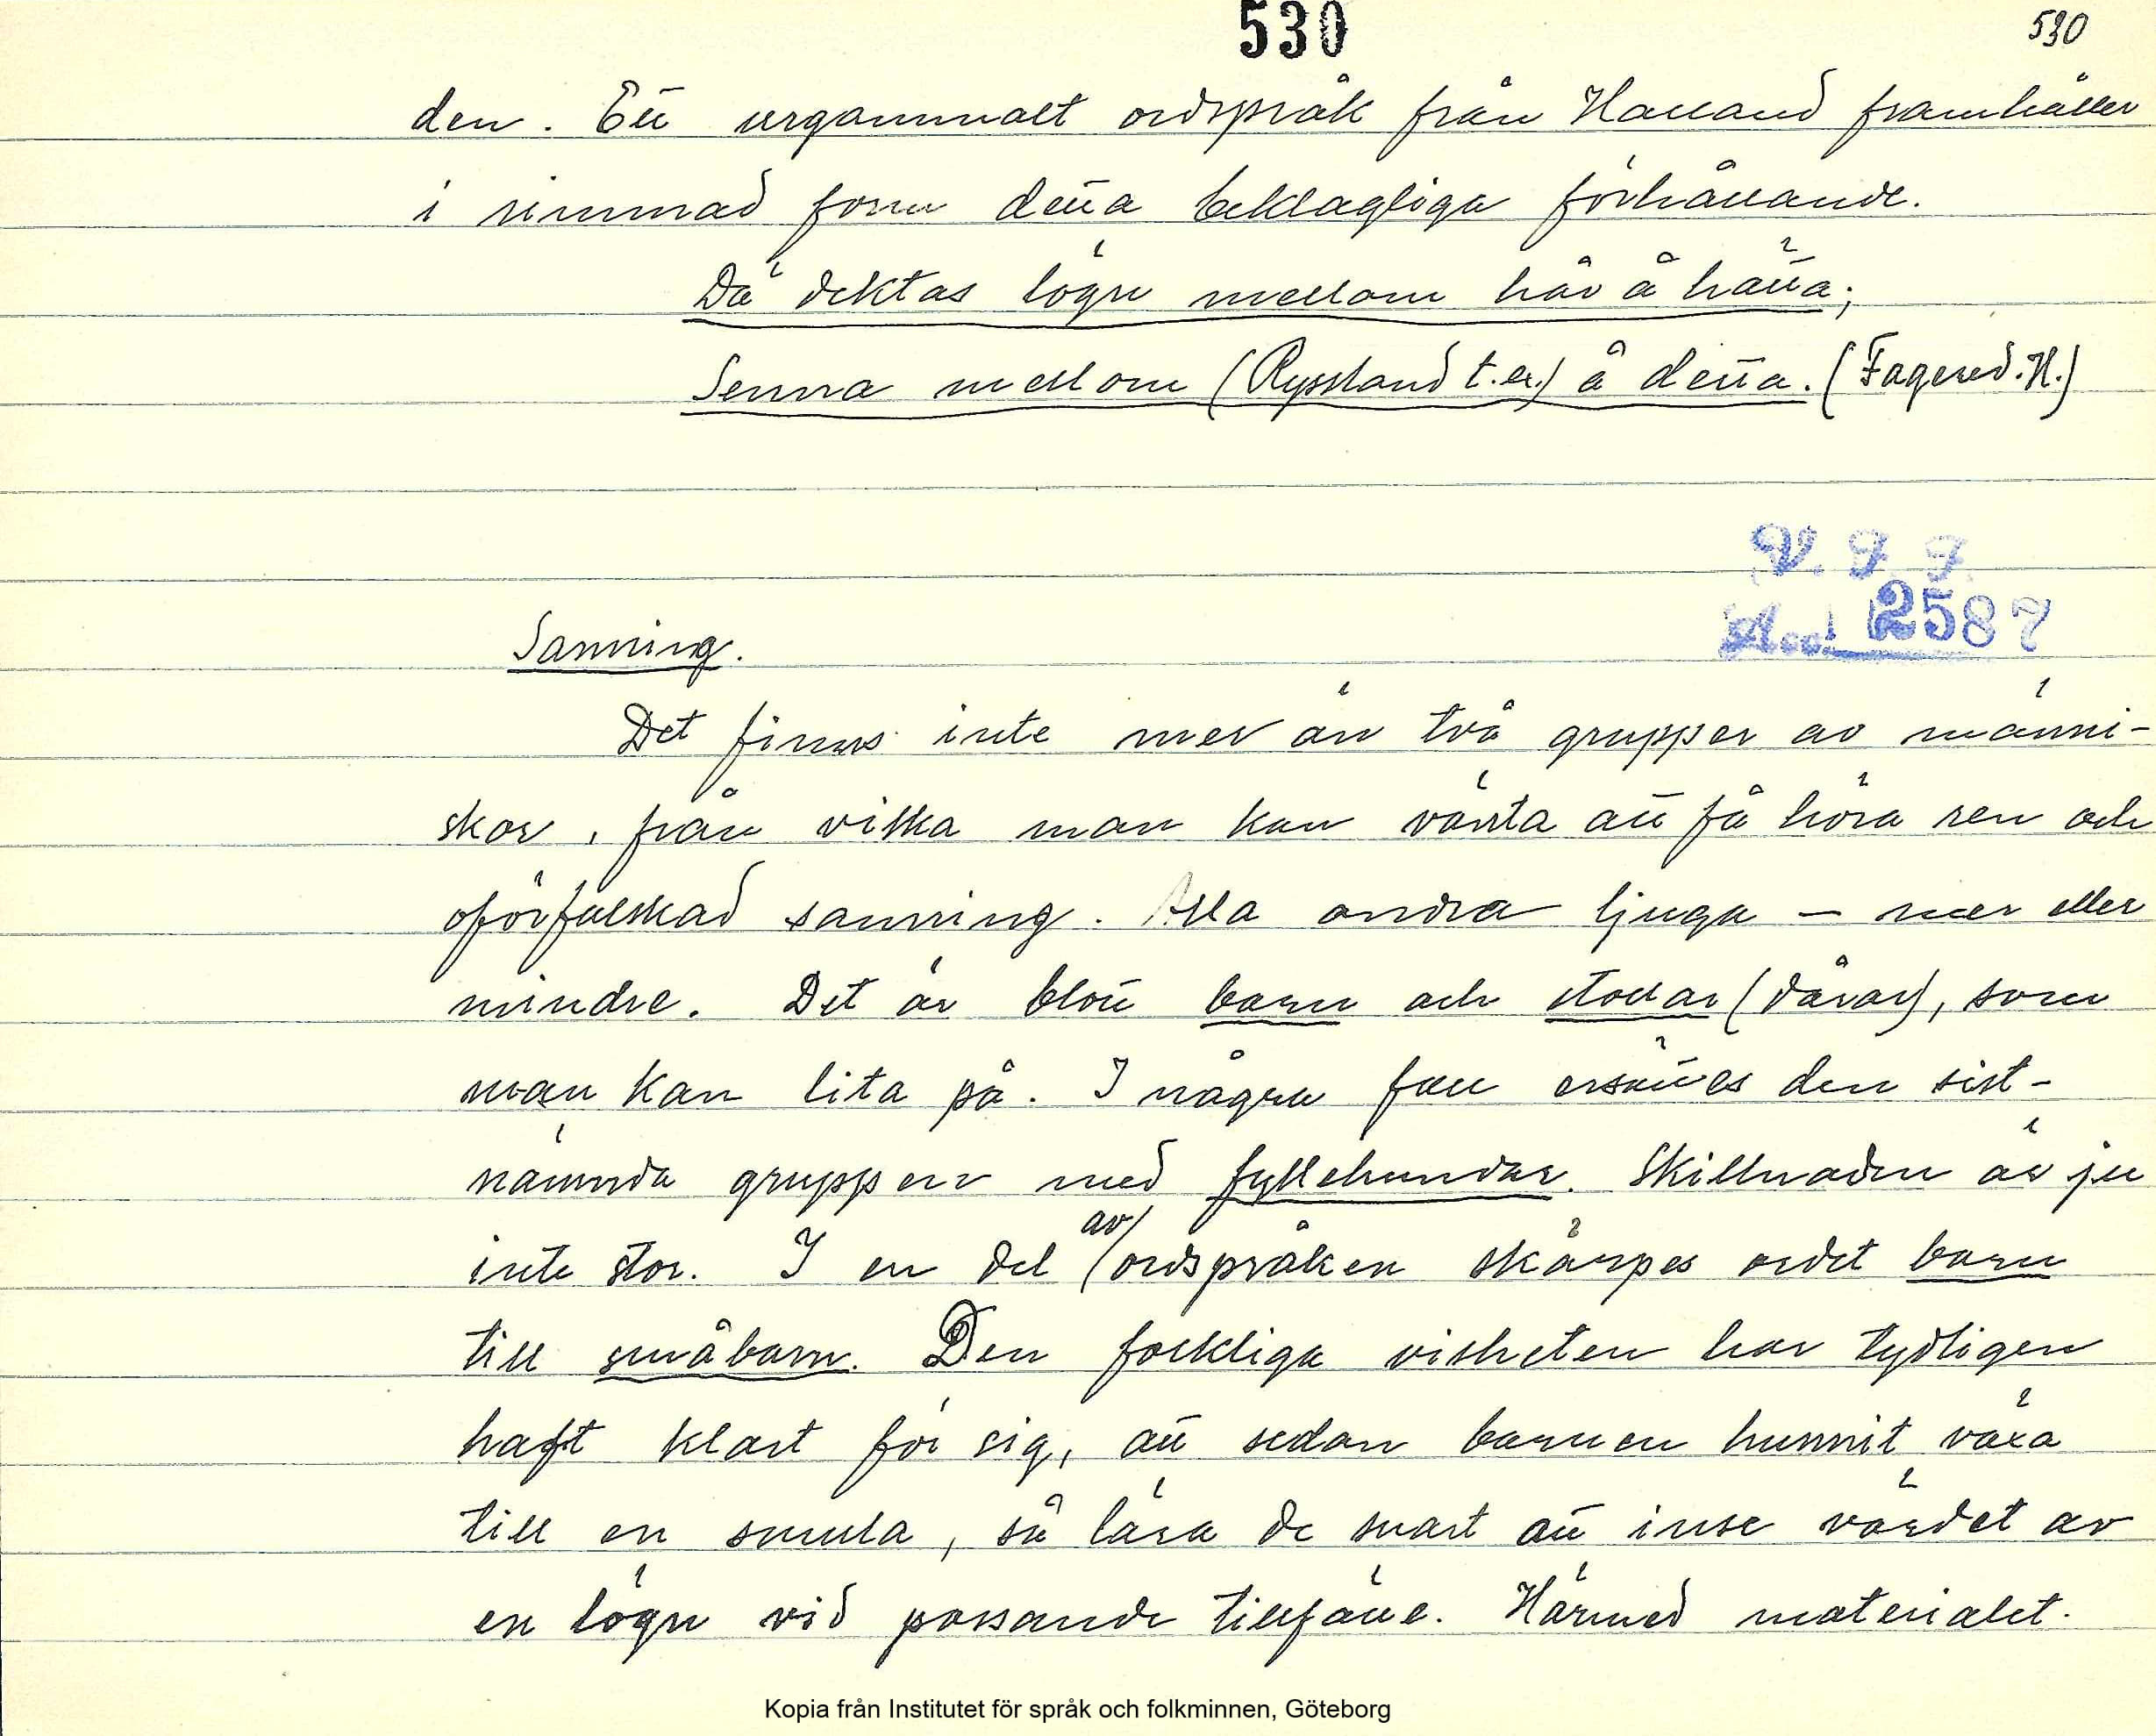 530
530
den. Ett urgammalt ordspråk från Halland framhåller
i rimmad form detta beklagliga förhållande.
Dä dektas lögn mellom hår å hätta;
Senna mellom (Ryssland t.ex.) å detta. (Fagered. H.)
V. F. F.
Acc. 2587
Sanning.
Det finns inte mer än två grupper av männi-
skor, från vilka man kan vänta att få höra ren och
oförfalskad sanning. Alla andra ljuga – mer eller
mindre. Det är blott barn och stollar (dårar), som
man kan lita på. I några fall ersättes den sist-
nämnda gruppen med fyllehundar. Skillnaden är ju
inte stor. I en del av ordspråken skärpes ordet barn
till småbarn. Den folkliga visheten har tydligen
haft klart för sig, att sedan barnen hunnit växa
till en smula, så lära de snart att inse värdet av
en lögn vid passande tillfälle. Härmed materialet.
Kopia från Institutet för språk och folkminnen, Göteborg